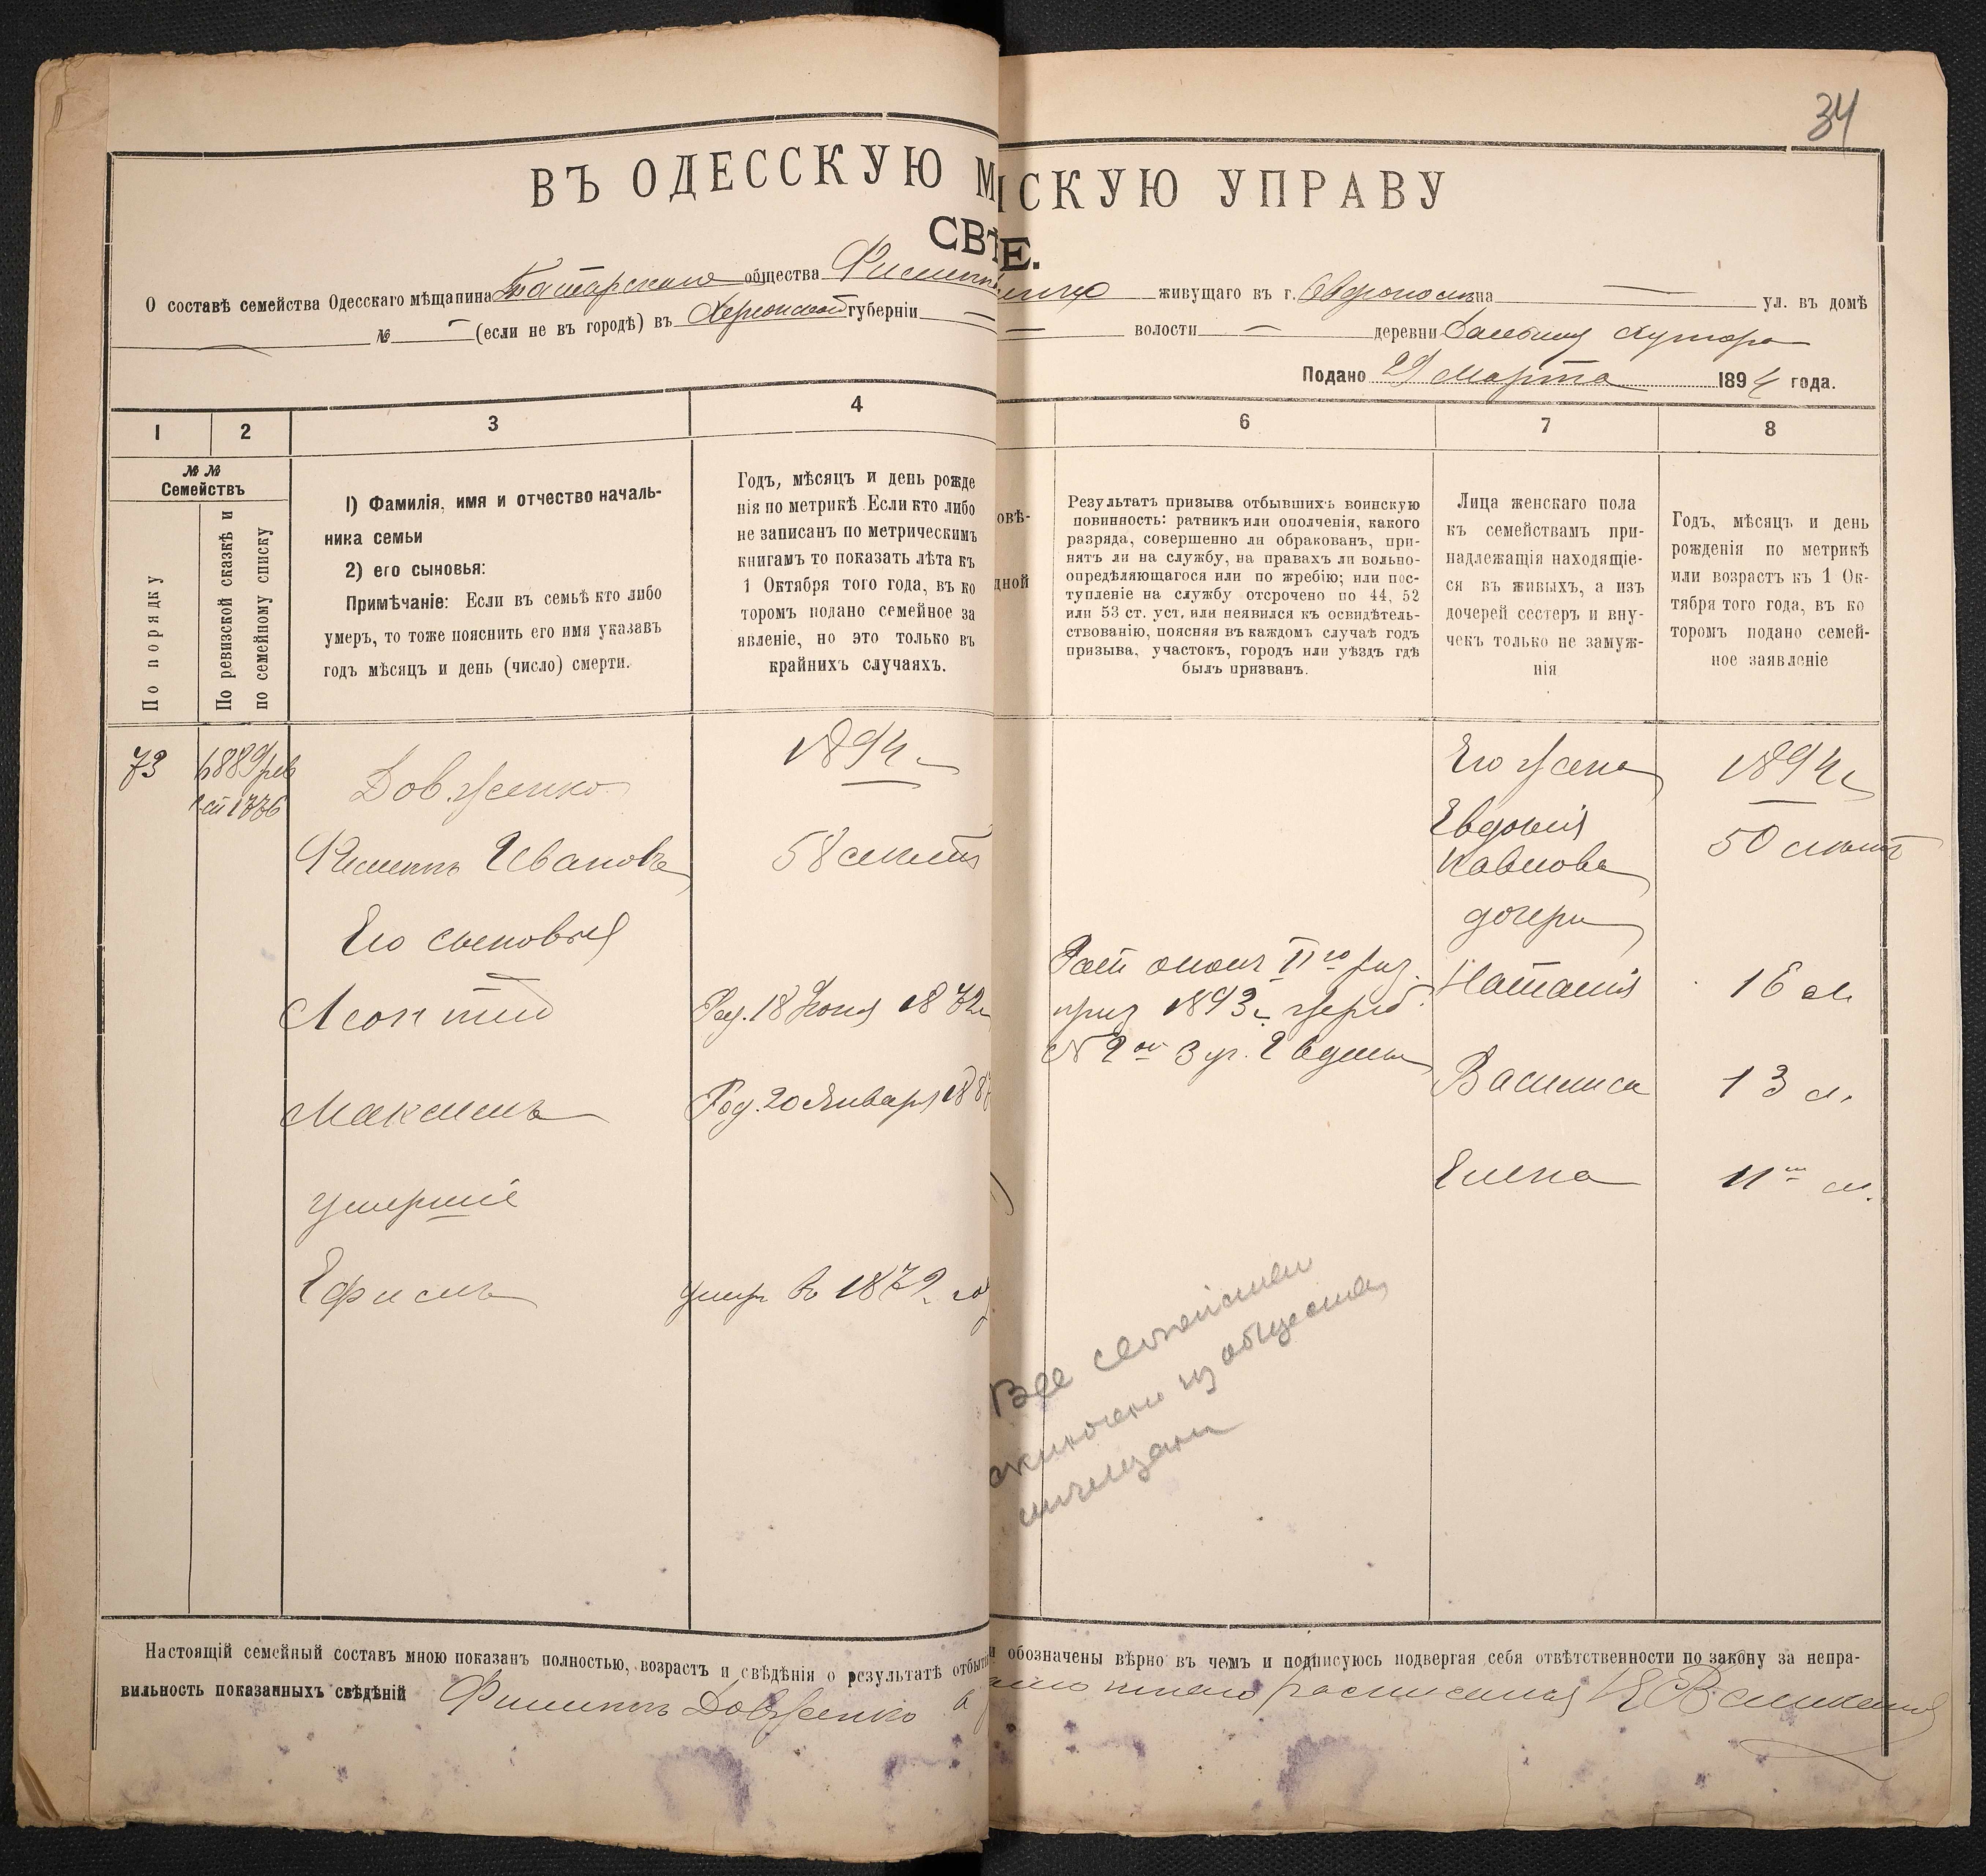 34
ВЪ ОДЕССКУЮ М СКУЮ УПРАВУ
СВѢ Е.
О составѣ семейства Одесскаго мѣщанина Татарскаго общества Филипп живущаго въ г. на — ул. въ домѣ
№ — (если не въ городѣ) въ Херсонской губерніи — волости — деревни Хутора
Подано 29 Марта 1894 года.
1 2 3 4 6 7 8
№ №
Семействъ
По порядку
По ревизской сказкѣ и
по семейному списку
1) Фамилія, имя и отчество началь-
ника семьи
2) его сыновья:
Примѣчаніе: Если въ семьѣ кто либо
умеръ, то тоже пояснить его имя указавъ
годъ мѣсяцъ и день (число) смерти.
Годъ, мѣсяцъ и день рожде
нія по метрикѣ Если кто либо
не записанъ по метрическимъ
книгамъ то показать лѣта къ
1 Октября того года, въ ко
торомъ подано семейное за
явленіе, но это только въ
крайнихъ случаяхъ.
овѣ-
дной
Результатъ призыва отбывшихъ воинскую
повинность: ратникъ или ополченія, какого
разряда, совершенно ли обракованъ, при-
нятъ ли на службу, на правахъ ли вольно-
опредѣляющагося или по жребію; или пос-
тупленіе на службу отсрочено по 44, 52
или 53 ст. уст. или неявился къ освидѣтель-
ствованію, поясняя въ каждомъ случаѣ годъ
призыва, участокъ, городъ или уѣздъ гдѣ
былъ призванъ.
Лица женскаго пола
къ семействамъ при-
надлежащія находящіе-
ся въ живыхъ, а изъ
дочерей сестеръ и вну-
чекъ только не замуж-
нія
Годъ, мѣсяцъ и день
рожденія по метрикѣ
или возрастъ къ 1 Ок-
тября того года, въ ко
торомъ подано семей-
ное заявленіе
73
1776
Довженко
Филиппъ Ивановъ
Его сыновья
Леонтій
Максимъ
умершіе
Ефимъ
1894 г.
58 лѣтъ
Род. 18 Іюня 1872
Род. 20 Января 18
умер въ 1872 го
Рат. ополч. II го раз.
приз 1893 г. жереб.
№ 9 3 уч.
Его жена
Евдокія
Павлова
дочери
Наталія
Василиса
Елена
1894 г.
50 лѣтъ
16 л.
13 л.
11 л.
Все семейство
исключено из общества
мещан
Настоящій семейный составъ мною показанъ полностью, возрастъ и свѣдѣнія о результатѣ отбыт обозначены вѣрно въ чемъ и подписуюсь подвергая себя отвѣтственности по закону за непра-
вильность показанныхъ свѣдѣній Филиппъ Довженко